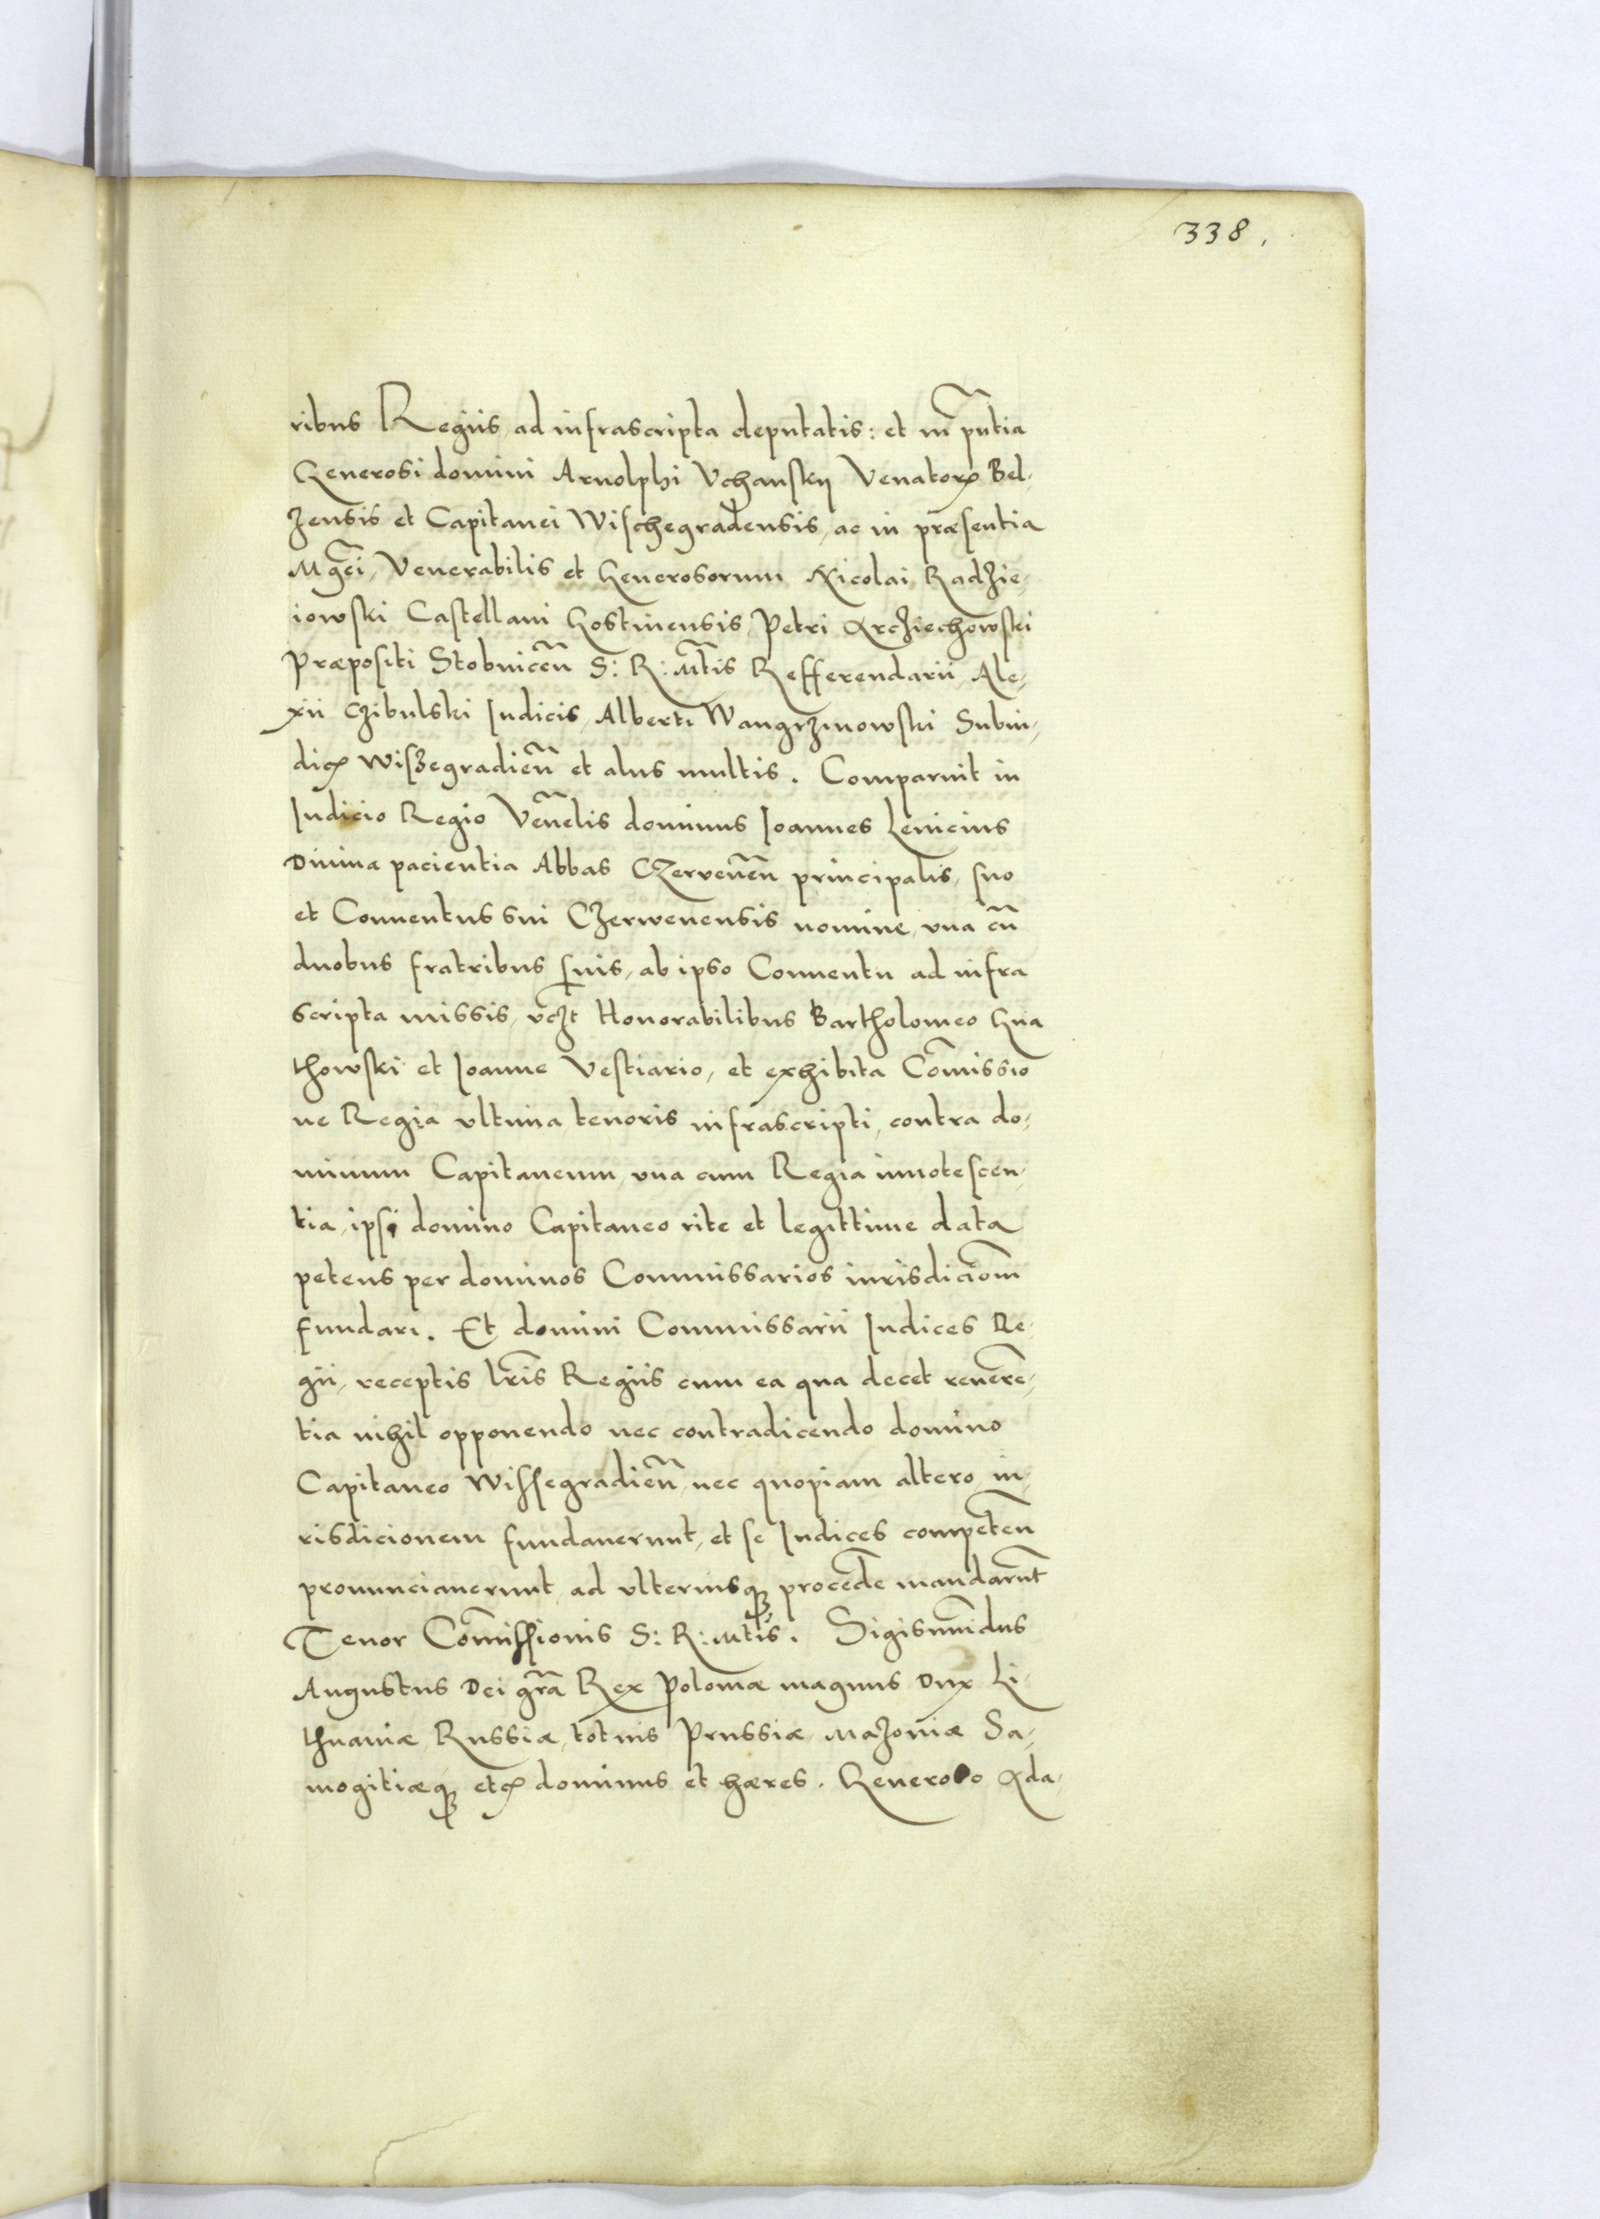 338.
ribus Regiis ad infrascripta deputatis: et in pn̄tia
Generosi domini Arnolphi Vchanskij Venatorꝭ Bel-
zensis et Capitanei Wischegradensis, ac in præsentia
Mgc̄i, Venerabilis et Generosorum Nicolai Radzie-
iowski Castellani Gostinensis, Petri Arcziechowski
Præpositi Stobnicen̄ S: R: Mt̄is Refferendarii, Ale-
xii Czibulski Iudicis, Alberti Wangrzinowski Subiu-
dicꝭ Wiszegradien̄ et aliis multis. Comparuit in
Iudicio Regio Ven̄elis dominus Ioannes Lenicius
Diuina pacientia Abbas Czerwenen̄ principalis, suo
et Conuentus sui Czerwenensis nomine, vna cū
duobus fratribus suis, ab ipso Conuentu ad infra
scripta missis, vc̄zt Honorabilibus Bartholomeo Gna
thowski et Ioanne Vestiario, et exhibita Com̄issio
ne Regia vltima tenoris infrascripti, contra do-
minum Capitaneum, vna cum Regia innotescen-
tia, ipsi domino Capitaneo rite et legittime data
petens per dominos Commissarios iurisdiciom̄
fundari. Et domini Commissarii Iudices Re-
gii, receptis lr̄is Regiis cum ea qua decet reuerē-
tia nihil opponendo nec contradicendo domino
Capitaneo Wissegradien̄, nec quopiam altero, iu-
risdicionem fundauerunt, et se Iudices competen̄
pronunciauerunt, ad vlteriusqꝫ proced̄e mandarūt
Tenor Com̄issionis S: R: Mt̄is. Sigismūdus
Augustus Dei gr̄a Rex Poloniæ magnus Dux Li-
thuaniæ, Russiæ, totius Prussiæ, Mazouiæ Sa-
mogitiæqꝫ etcꝭ dominus et hæres. Generoso Ada-